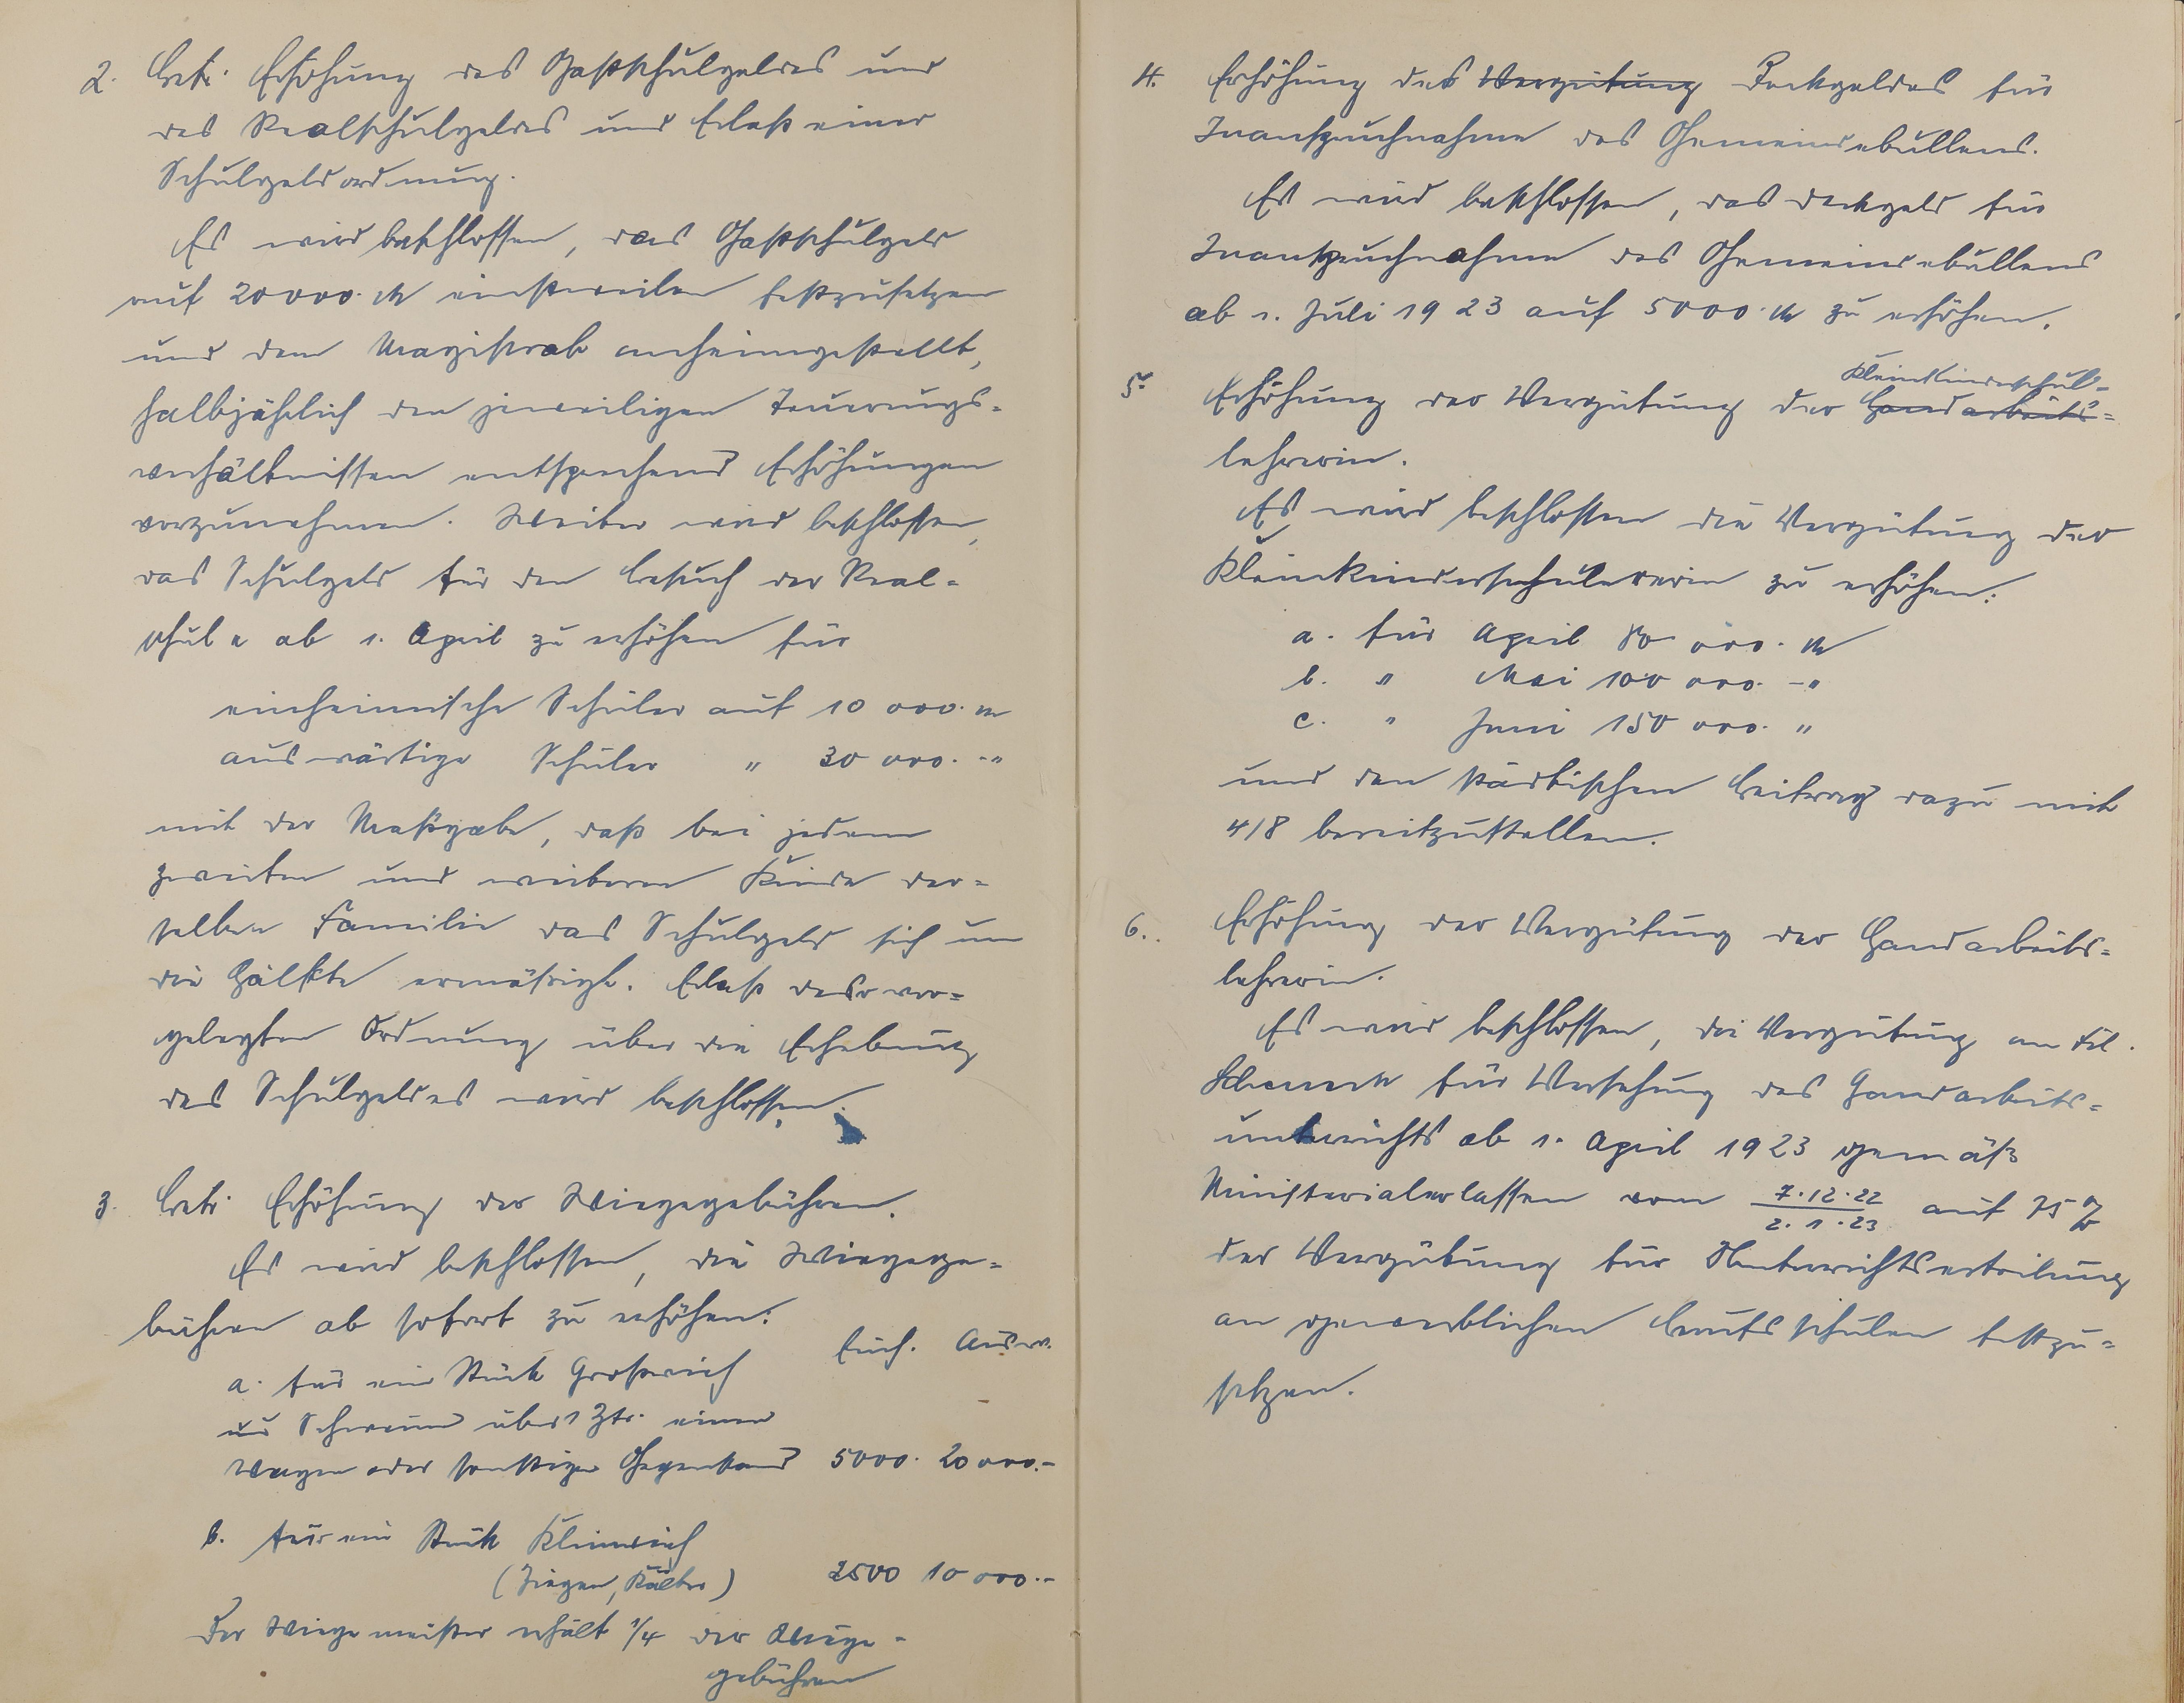 2. Betr. Erhöhung des Gastschulgeldes und
des Realschulgeldes und Erlaß einer
Schulgeldordnung.
Es wird beschlossen, das Gastschulgeld
auf 20000. M einstweilen festzusetzen
und dem Magistrat anheimgestellt,
halbjährlich den jeweiligen Teuerungs-
verhältnissen entsprechend Erhöhungen
vorzunehmen. Weiter wird beschlossen,
das Schulgeld für den Besuch der Real-
schule ab 1. April zu erhöhen für
einheimische Schüler auf 10 000. M
auswärtige Schüler " 30 000. -"
mit der Maßgabe, daß bei jedem
zweiten und weiteren Kinde der-
selben Familie das Schulgeld sich um
die Hälfte ermäßigt. Erlaß der vor-
gelegten Ordnung über die Erhebung
des Schulgeldes wird beschlossen.
3. Betr. Erhöhung der Wiegegebühren.
Es wird beschlossen, die Wiegege-
bühren ab sofort zu erhöhen:
Einh. Ausw.
a. für ein Stück Großvieh
und Schweine über 1 Ztr. einen
Wagen oder sonstigen Gegenstand 5000. 20 000.-
b. für ein Stück Kleinvieh
(Ziegen, Kälber) 2500 10 000.-
Der Wiegemeister erhält 1/4 der Wiege-
gebühren
4. Erhöhung des Vergütung Deckgeldes für
Inanspruchnahme des Gemeindebullens.
Es wird beschlossen, das Deckgeld für
Inanspruchnahme des Gemeindebullens
ab 1. Juli 1923 auf 5000. M zu erhöhen.
Kleinkinderschul-
5. Erhöhung der Vergütung der Handarbeits-
lehrerin.
Es wird beschlossen die Vergütung der
Kleinkinderschulererin zu erhöhen:
a. für April 80 000. M
b. " Mai 100 000. -"
c. " Juni 150 000. "
und den städtischen Beitrag dazu mit
4/8 bereitzustellen.
6. Erhöhung der Vergütung der Handarbeits-
lehrerin.
Es wird beschlossen, die Vergütung an Frl.
für Versehung des Handarbeits-
unterrichts ab 1. April 1923 gemäß
Ministerialerlassen vom 7.12.22 / 2.1.23 auf 75 %
der Vergütung für Unterrichtserteilung
an gewerblichen Berufsschulen festzu-
setzen.